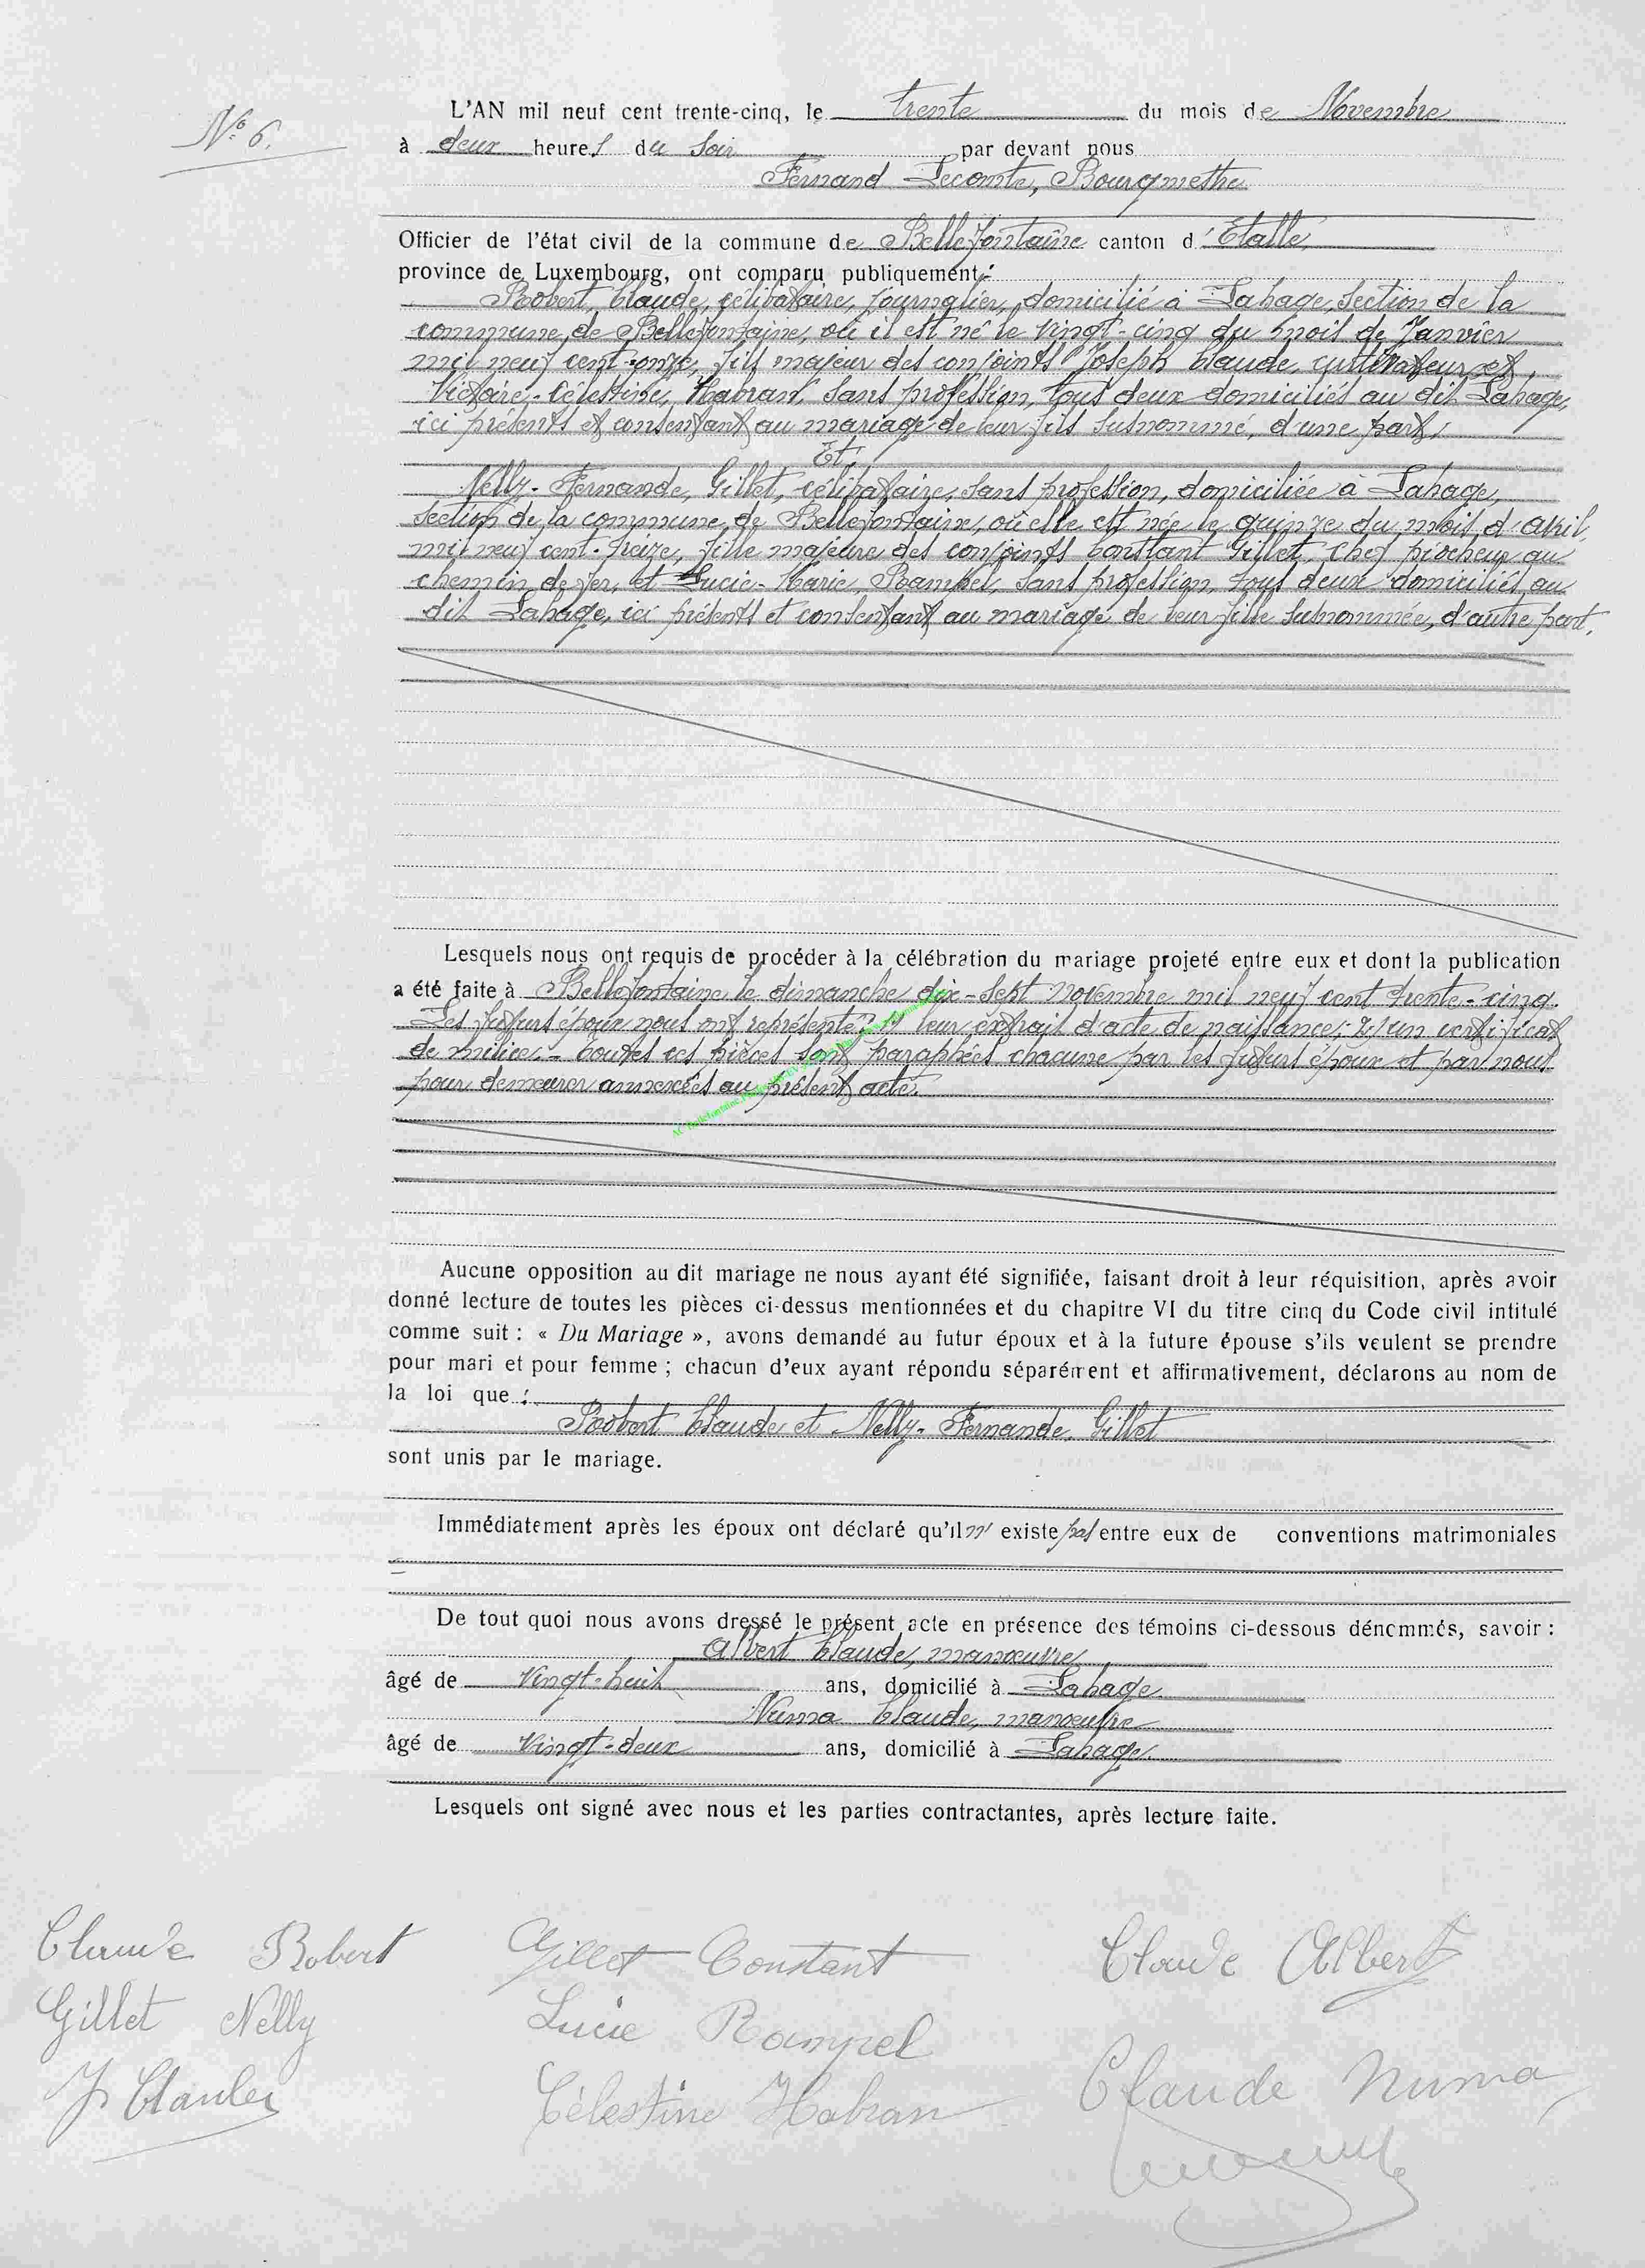 N° 6.
L'AN mil neuf cent trente-cinq, le trente du mois de Novembre
à deux heures du soir par devant nous
Fernand Lecomte, Bourgmestre
Officier de l'état civil de la commune de Bellefontaine canton d'Etalle,
province de Luxembourg, ont comparu publiquement:
Robert, Claude, célibataire, journalier, domicilié à Lahage, section de la
commune de Bellefontaine, où il est né le vingt-cinq du mois de Janvier
mil neuf cent-onze, fils majeur des conjoints Joseph Claude, cultivateur et,
Victoire-Célestine, Habran, sans profession, tous deux domiciliés au dit Lahage,
ici présents et consentant au mariage de leur fils susnommé, d'une part,
Et,
Nelly-Fernande, Gillet, célibataire, sans profession, domiciliée à Lahage,
section de la commune de Bellefontaine, où elle est née le quinze du mois d'avril,
mil neuf cent-treize, fille majeure des conjoints Constant Gillet, chef piocheur au
chemin de fer, et Lucie-Marie, Rampel, sans profession, tous deux domiciliés au
dit Lahage, ici présents et consentant au mariage de leur fille susnommée, d'autre part.
Lesquels nous ont requis de procéder à la célébration du mariage projeté entre eux et dont la publication
a été faite à Bellefontaine le dimanche dix-sept novembre mil neuf cent trente-cinq.
Les futurs époux nous ont représenté: 1) leur extrait d'acte de naissance; 2) un certificat
de milice.- Toutes ces pièces sont paraphées chacune par les futurs époux et par nous
pour demeurer annexées au présent acte.
Aucune opposition au dit mariage ne nous ayant été signifiée, faisant droit à leur réquisition, après avoir
donné lecture de toutes les pièces ci-dessus mentionnées et du chapitre VI du titre cinq du Code civil intitulé
comme suit : « Du Mariage », avons demandé au futur époux et à la future épouse s'ils veulent se prendre
pour mari et pour femme ; chacun d'eux ayant répondu séparément et affirmativement, déclarons au nom de
la loi que :
Robert Claude et Nelly-Fernande, Gillet
sont unis par le mariage.
Immédiatement après les époux ont déclaré qu'il n'existe pas entre eux de conventions matrimoniales
De tout quoi nous avons dressé le présent acte en présence des témoins ci-dessous dénommés, savoir :
Albert Claude, manœuvre,
âgé de vingt-huit ans, domicilié à Lahage.
Numa Claude, manœuvre
âgé de vingt-deux ans, domicilié à Lahage.
Lesquels ont signé avec nous et les parties contractantes, après lecture faite.
Claude Robert Gillet Constant Claude Albert
Gillet Nelly Lucie Rampel
J. Claude Célestine Habran Claude Numa